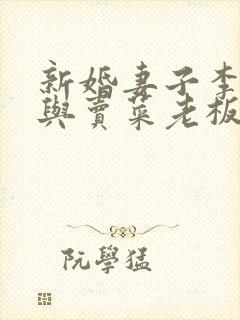 新婚妻子李
與賣菜老板
阮學猛